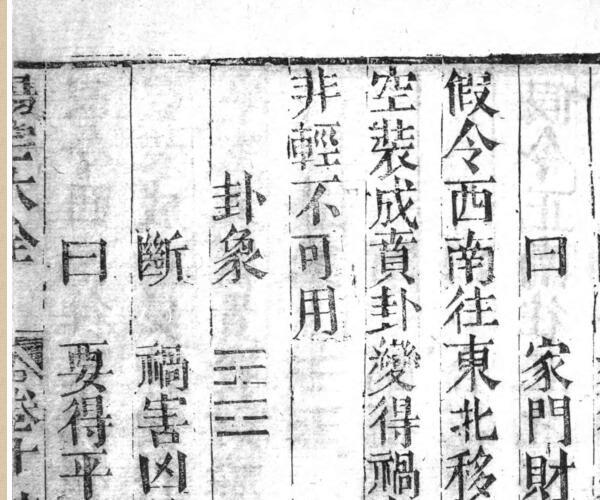 曰 家門財
假令西南往東北移
空裝成賁卦變得禍
非輕不可用
卦象
斷 禍害凶
曰 要得平
大全 卷十